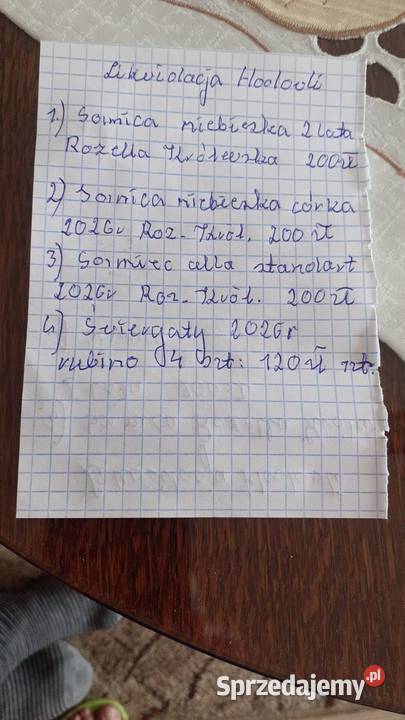 Likwidacja Hodowli
1.) Samica niebieska 2 lata
Rozella Królewska 200 zł
2) Samica niebieska córka
2026r Roz. Król. 200 zł
3) Samiec alla standart
2026r Roz. Król. 200 zł
4) Świergoty 2026r
rubino 4 szt: 120 zł szt.
Sprzedajemy.pl